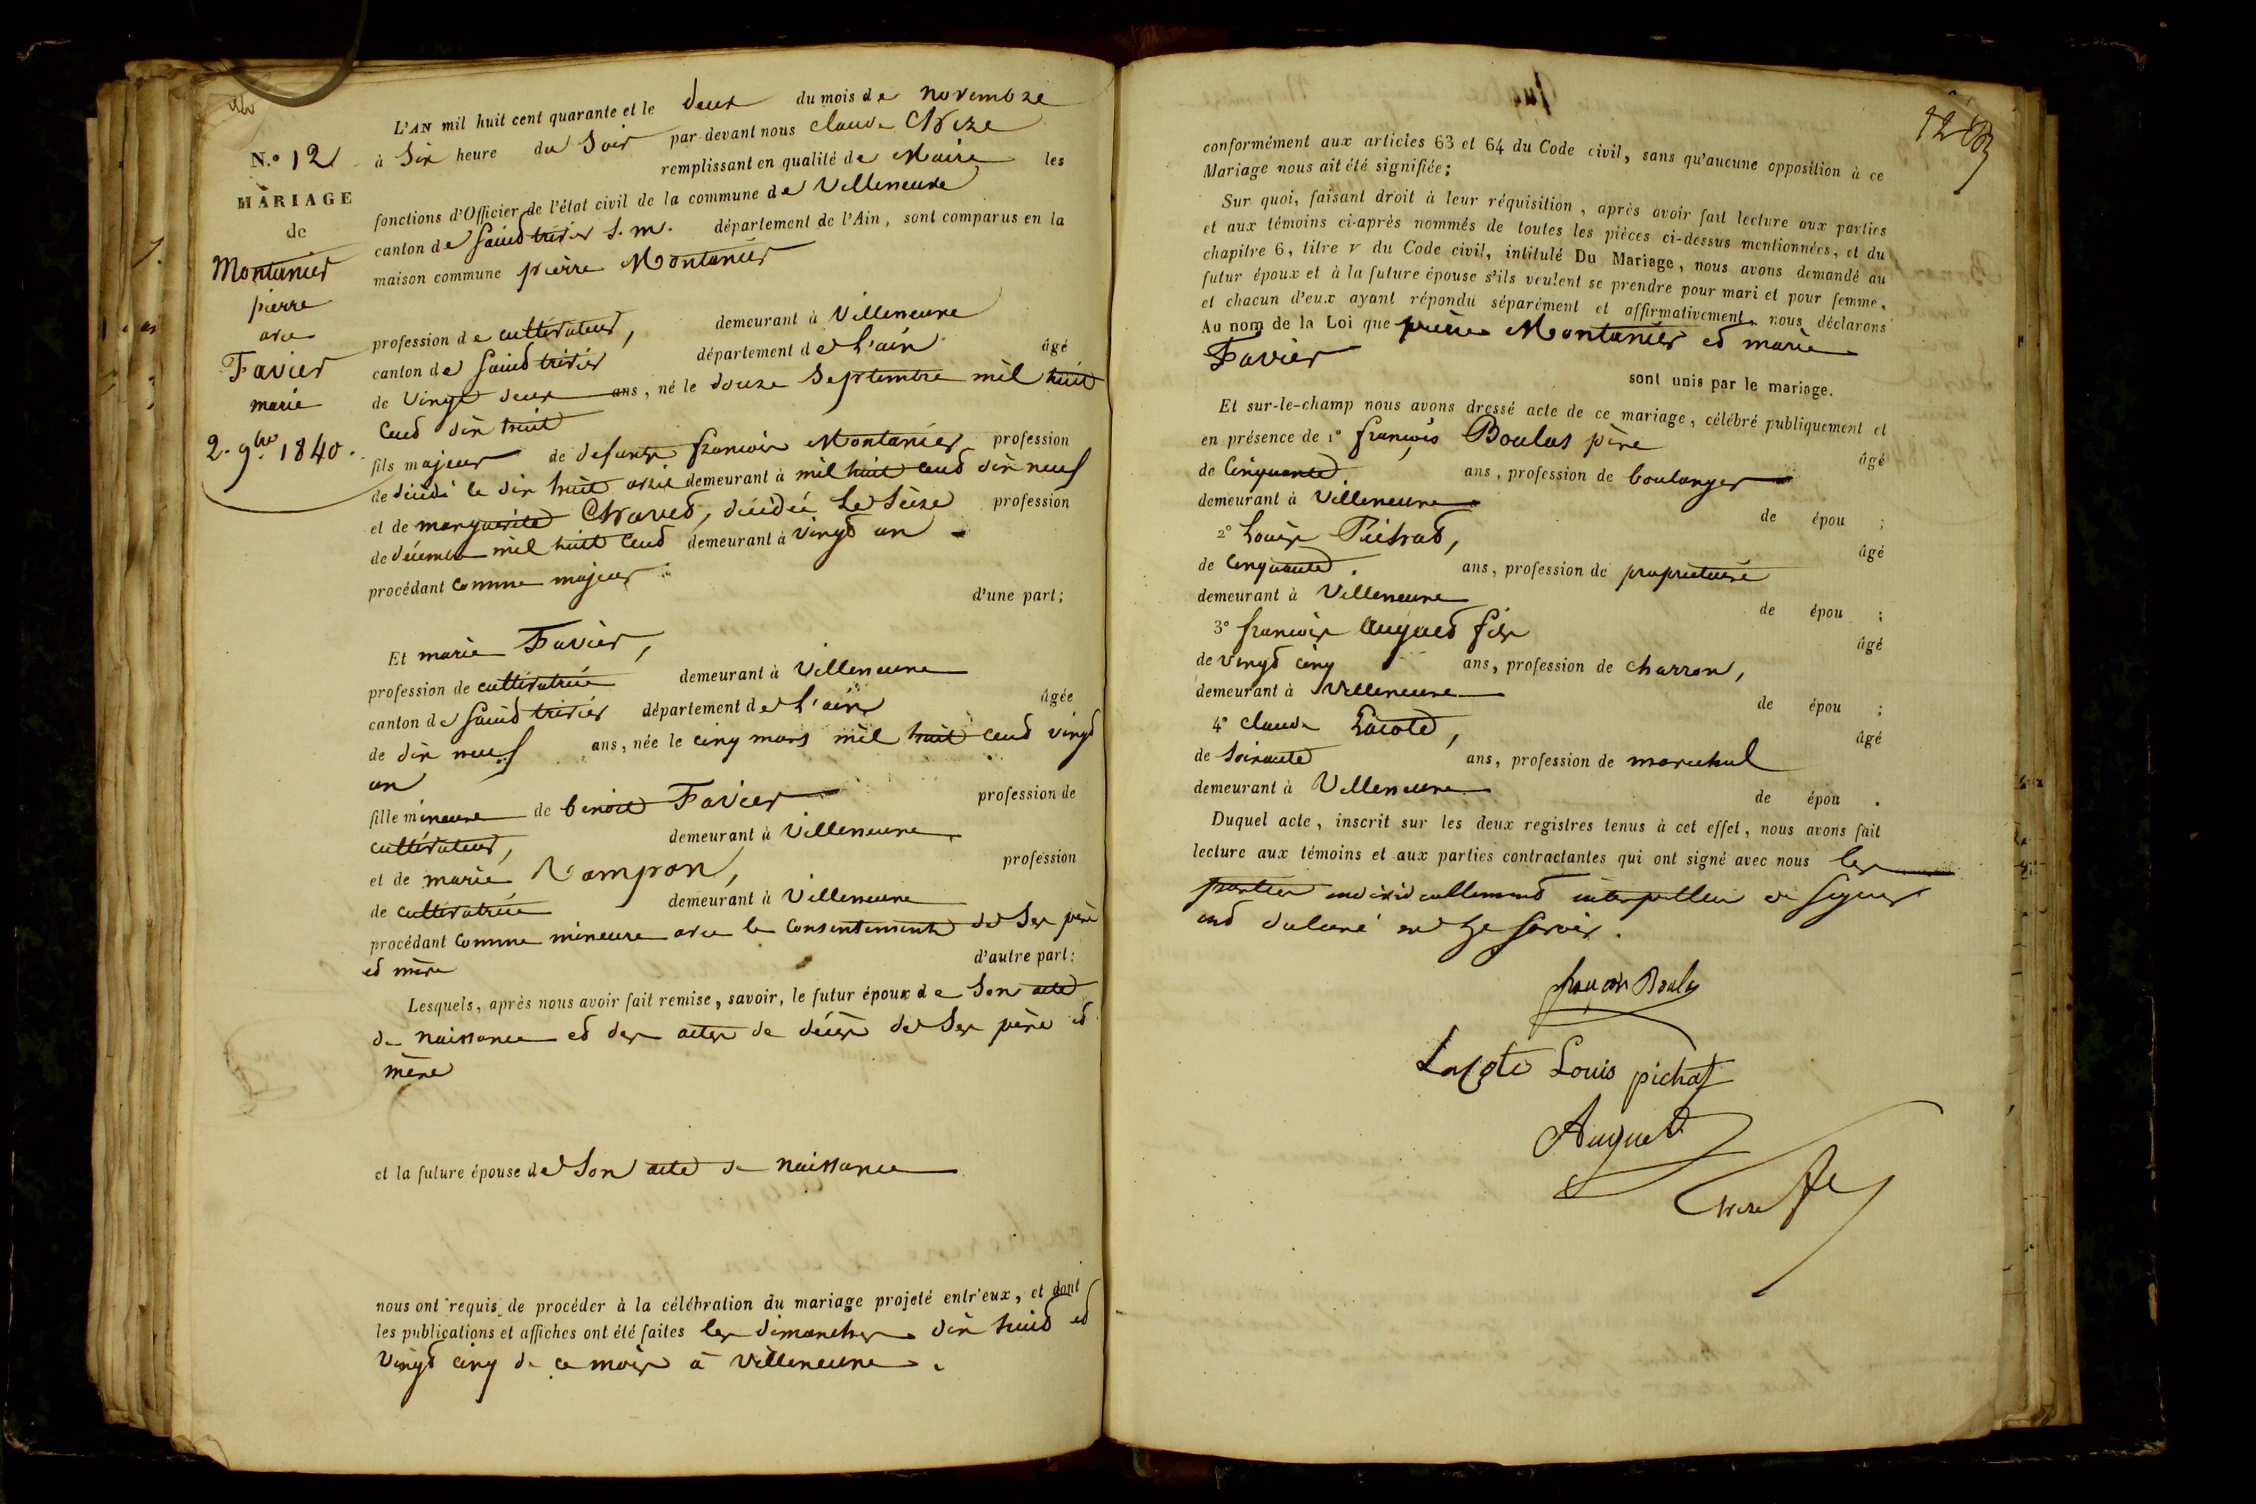 N.º 12
MARIAGE
de
Montanier
pierre
avec
Favier
marie
2. 9bre 1840.
L'AN mil huit cent quarante et le deux du mois de novembre
à Six heure du Soir par-devant nous claude Chize
remplissant en qualité de Maire les
fonctions d'Officier de l'état civil de la commune de Villeneuve
canton de Saint trivier S. m. département de l'Ain, sont comparus en la
maison commune pierre Montanier
profession de cultivateur, demeurant à Villeneuve
canton de Saint trivier département de l'ain âgé
de vingt deux ans, né le douze Septembre mil huit
cent dix huit
fils majeur de defunts françois Montanier profession
de décédé le dix huit demeurant à mil huit cent dix neuf
et de marguerite Chavet, décédée le Seize profession
de décembre mil huit cent demeurant à vingt un
procédant comme majeur
d'une part;
Et marie Favier,
profession de cultivatrice demeurant à Villeneuve
canton de Saint trivier département de l'ain âgée
de dix neuf ans, née le cinq mars mil huit cent vingt
un
fille mineure de benoit Favier profession de
cultivateur, demeurant à Villeneuve
et de marie Vampron, profession
de cultivatrice demeurant à Villeneuve
procédant comme mineure avec le consentement de Ses père
et mère d'autre part:
Lesquels, après nous avoir fait remise, savoir, le futur époux de Son acte
de naissance et des actes de décès de Ses père et
mère
et la future épouse de Son acte de naissance
nous ont requis de procéder à la célébration du mariage projeté entr'eux, et dont
les publications et affiches ont été faites les dimanches dix huit et
vingt cinq de ce mois à villeneuve.
12
conformément aux articles 63 et 64 du Code civil, sans qu'aucune opposition à ce
Mariage nous ait été signifiée;
Sur quoi, faisant droit à leur réquisition, après avoir fait lecture aux parties
et aux témoins ci-après nommés de toutes les pièces ci-dessus mentionnées, et du
chapitre 6, titre v du Code civil, intitulé Du Mariage, nous avons demandé au
futur époux et à la future épouse s'ils veulent se prendre pour mari et pour femme,
et chacun d'eux ayant répondu séparément et affirmativement, nous déclarons
Au nom de la Loi que pierre Montanier et marie
Favier
sont unis par le mariage.
Et sur-le-champ nous avons dressé acte de ce mariage, célébré publiquement et
en présence de 1º françois Boulas père âgé
de Cinquante ans, profession de boulanger
demeurant à Villeneuve de épou ;
2º Louis Pichat, âgé
de Cinquante ans, profession de propriétaire
demeurant à Villeneuve de épou ;
3º françois auguet fils âgé
de vingt cinq ans, profession de charron,
demeurant à Villeneuve de épou ;
4º claude Lacote, âgé
de Soixante ans, profession de marechal
demeurant à Villeneuve de épou .
Duquel acte, inscrit sur les deux registres tenus à cet effet, nous avons fait
lecture aux témoins et aux parties contractantes qui ont signé avec nous les
parties individuellement interpellés de signer
ont déclaré ne le savoir.
françois Boulas
Lacote Louis pichat
Auguet
Chize